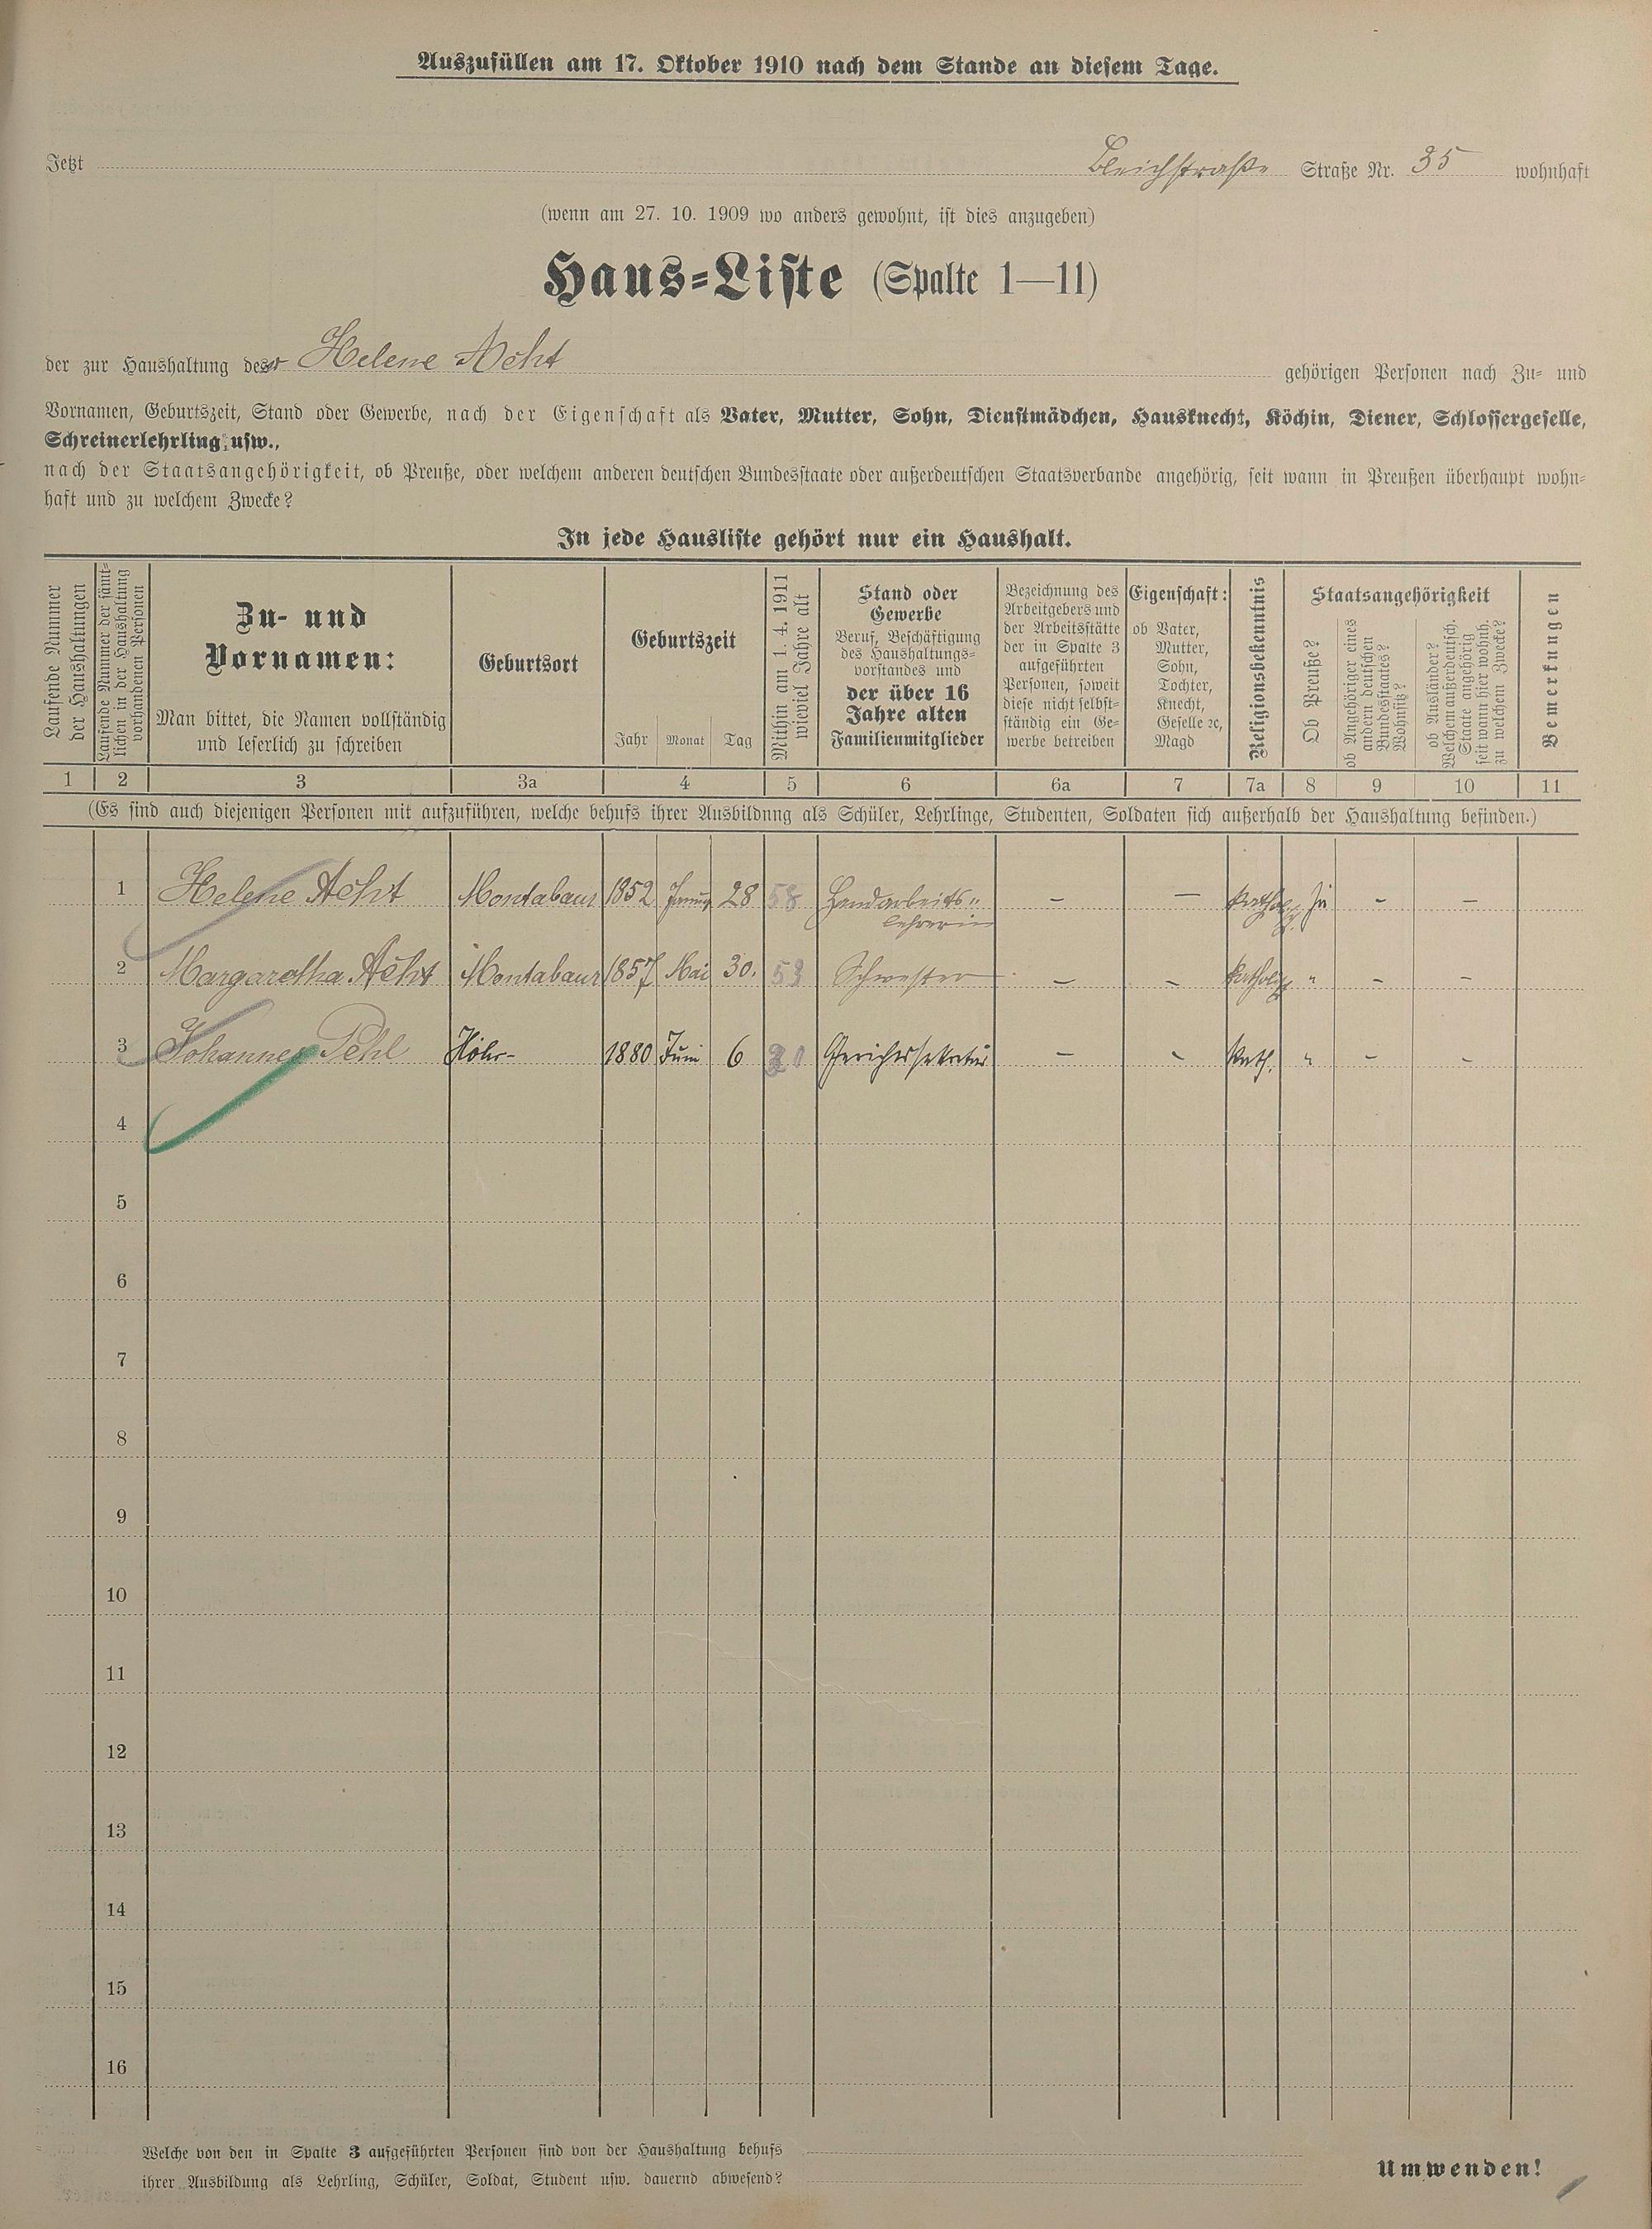 Auszufüllen am 17. Oktober 1910 nach dem Stande an diesem Tage.
Jetzt Bleichstraße Straße Nr. 35 wohnhaft
(wenn am 27. 10. 1909 wo anders gewohnt, ist dies anzugeben)
Haus-Liste (Spalte 1—11)
der zur Haushaltung der Helene Acht gehörigen Personen nach Zu- und
Vornamen, Geburtszeit, Stand oder Gewerbe, nach der Eigenschaft als Vater, Mutter, Sohn, Dienstmädchen, Hausknecht, Köchin, Diener, Schlossergeselle,
Schreinerlehrling usw.,
nach der Staatsangehörigkeit, ob Preuße, oder welchem anderen deutschen Bundesstaate oder außerdeutschen Staatsverbande angehörig, seit wann in Preußen überhaupt wohn-
haft und zu welchem Zwecke?
In jede Hausliste gehört nur ein Haushalt.
Laufende Nummer
der Haushaltungen
Laufende Nummer der sämt-
lichen in der Haushaltung
vorhandenen Personen
Zu- und
Vornamen:
Man bittet, die Namen vollständig
und leserlich zu schreiben
Geburtsort
Geburtszeit
Jahr Monat Tag
Mithin am 1. 4. 1911
wieviel Jahre alt
Stand oder
Gewerbe
Beruf, Beschäftigung
des Haushaltungs-
vorstandes und
der über 16
Jahre alten
Familienmitglieder
Bezeichnung des
Arbeitgebers und
der Arbeitsstätte
der in Spalte 3
aufgeführten
Personen, soweit
diese nicht selbst-
ständig ein Ge-
werbe betreiben
Eigenschaft:
ob Vater,
Mutter,
Sohn,
Tochter,
Knecht,
Geselle ꝛc,
Magd
Religionsbekenntnis
Staatsangehörigkeit
Ob Preuße?
ob Angehöriger eines
andern deutschen
Bundesstaates?
Wohnsitz?
ob Ausländer?
Welchem außerdeutsch.
Staate angehörig
seit wann hier wohnh.
zu welchem Zwecke?
Bemerkungen
1 2 3 3a 4 5 6 6a 7 7a 8 9 10 11
(Es sind auch diejenigen Personen mit aufzuführen, welche behufs ihrer Ausbildung als Schüler, Lehrlinge, Studenten, Soldaten sich außerhalb der Haushaltung befinden.)
1 Helene Acht Montabaur 1852 Januar 28 58 Handarbeits- – – Kathol. Ja – –
lehrerin
2 Margaretha Acht Montabaur 1857 Mai 30. 53 Schwester – – Katholisch " – –
3 Johannes Pehl Höhr- 1880 Juni 6 Gerichtssekretär – – Kath. " – –
4
5
6
7
8
9
10
11
12
13
14
15
16
Welche von den in Spalte 3 aufgeführten Personen sind von der Haushaltung behufs
ihrer Ausbildung als Lehrling, Schüler, Soldat, Student usw. dauernd abwesend?
Umwenden!